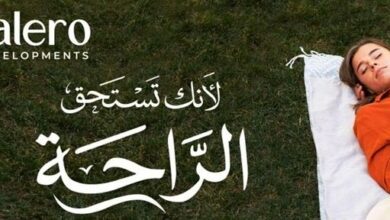 alero
ELOPMENTS
لأنك تستحق
الراحة